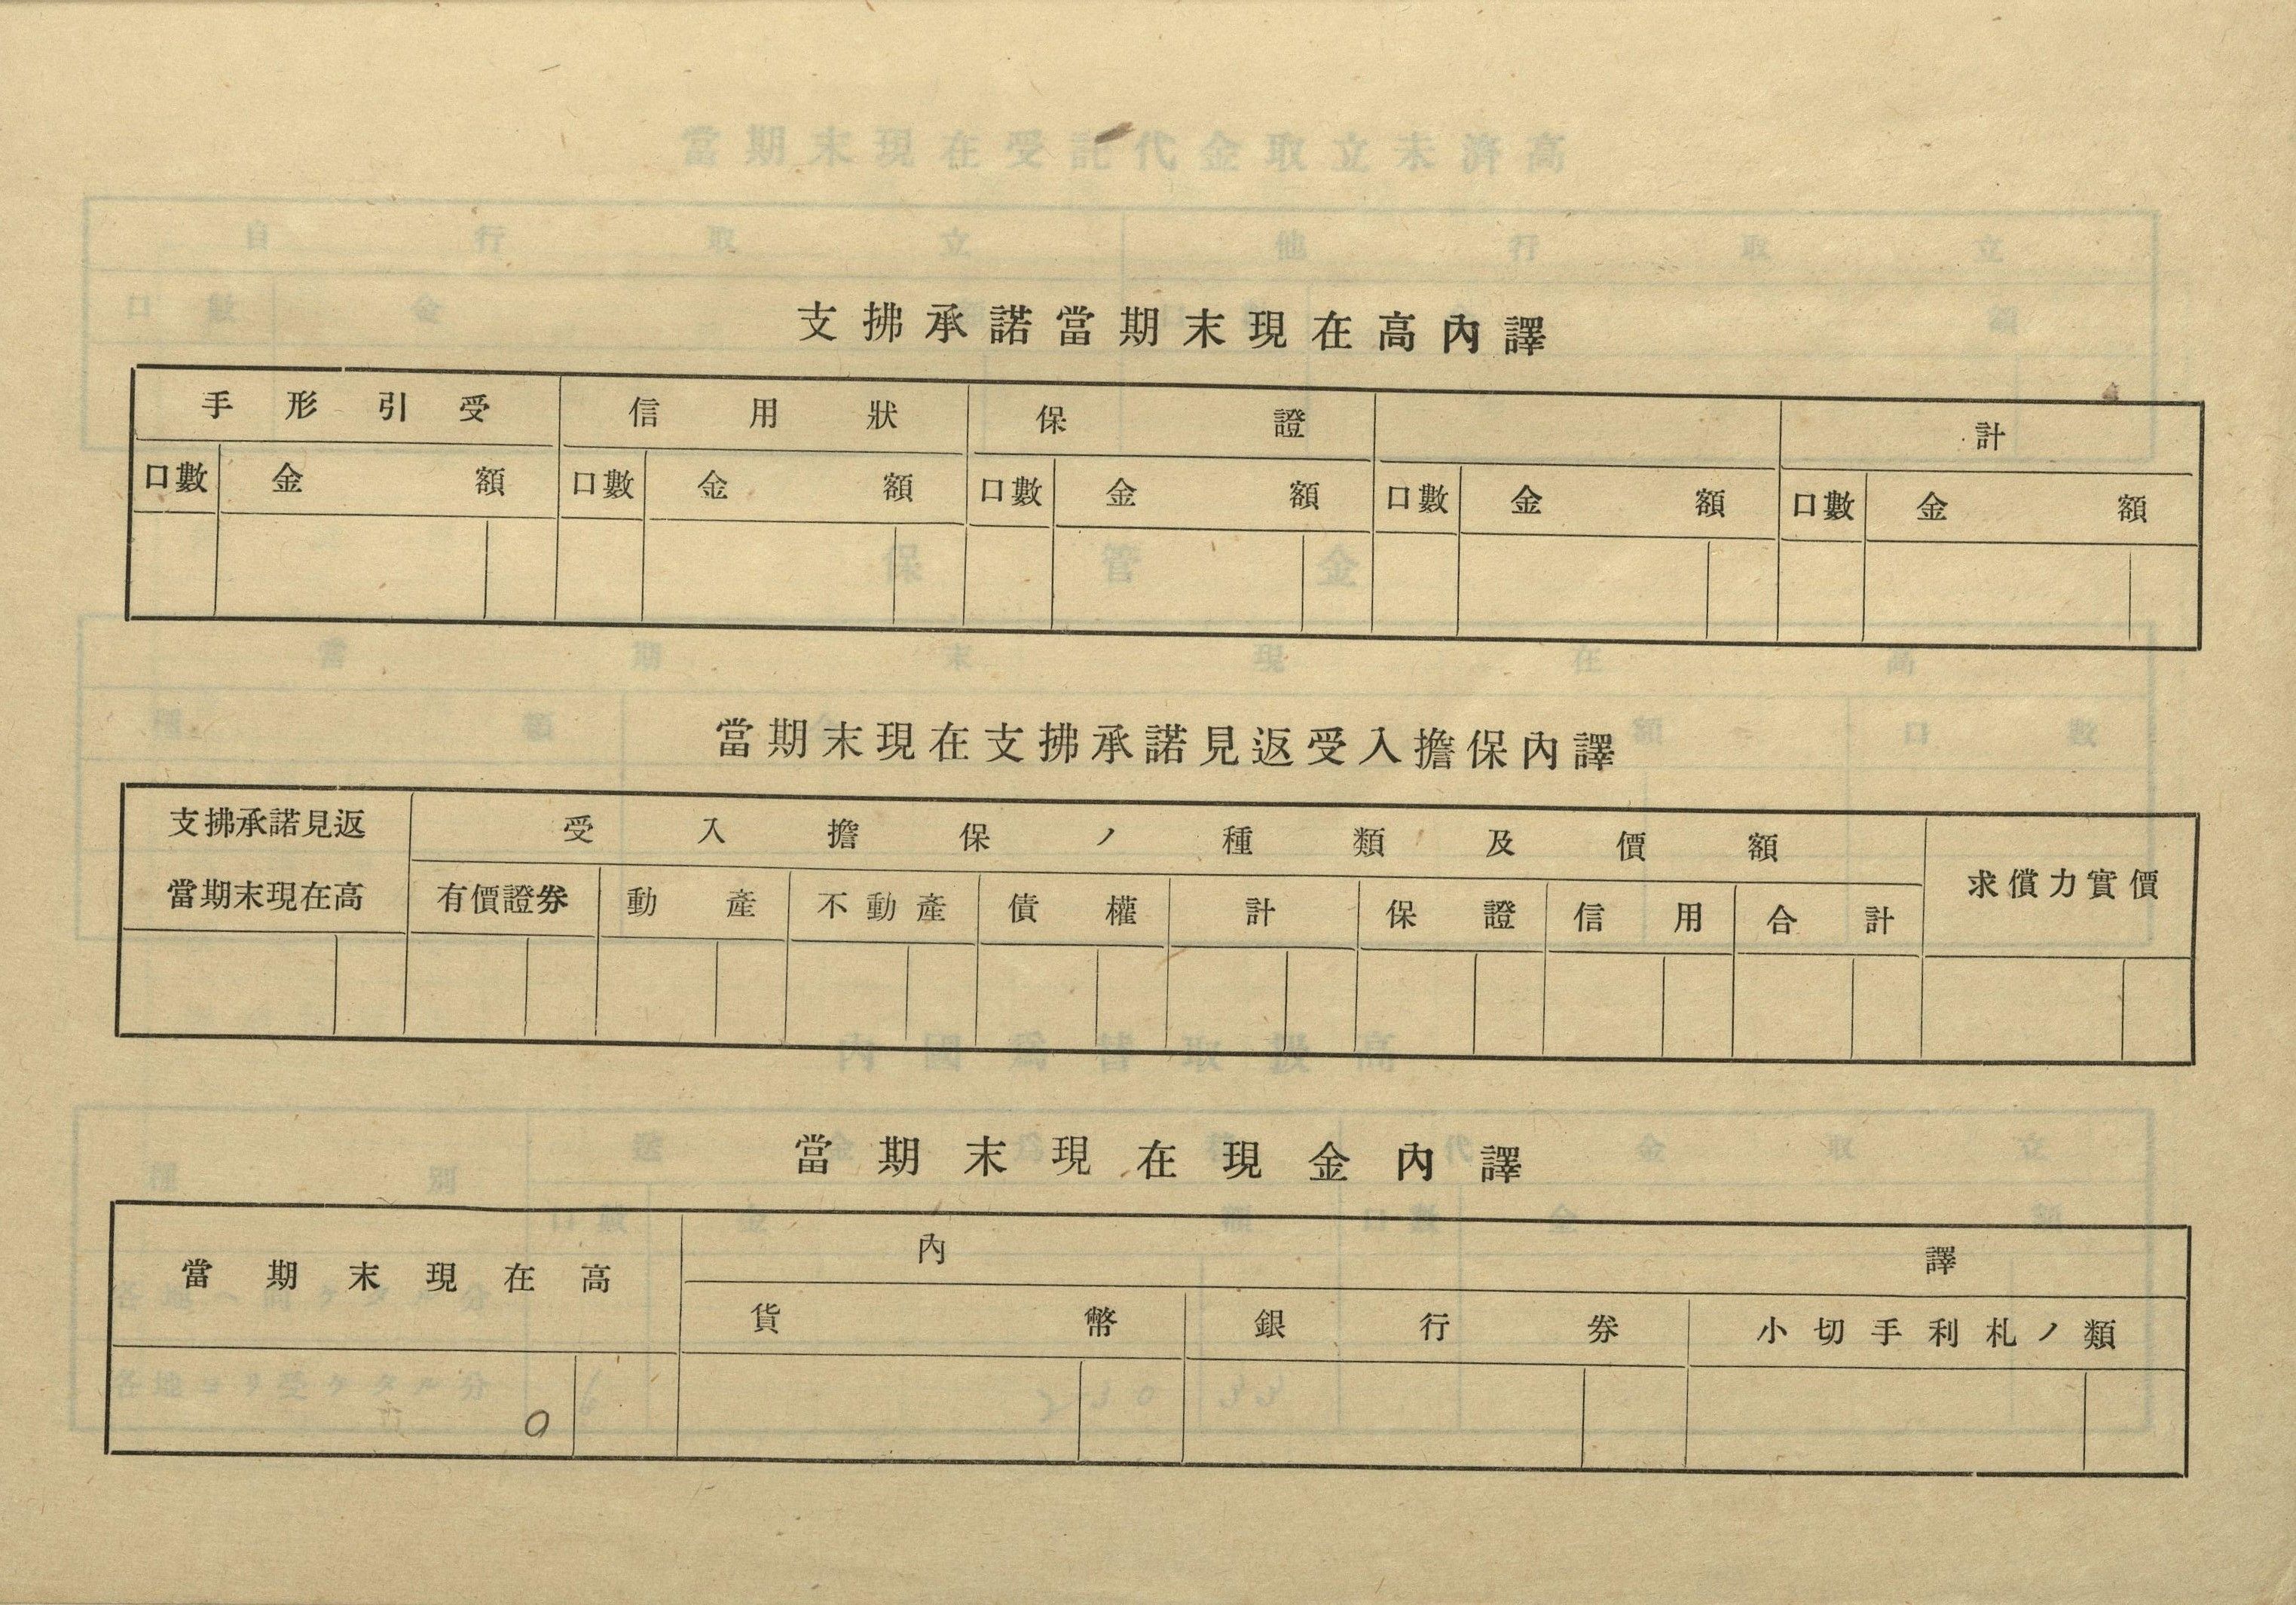 支拂承諾當期末現在高內譯
手形引受 信用狀 保證 計
口數 金額 口數 金額 口數 金額 口數 金額 口數 金額
當期末現在支拂承諾見返受入擔保內譯
支拂承諾見返 受入擔保ノ種類及價額
當期末現在高 有價證券 動產 不動產 債權 計 保證 信用 合計 求償力實價
當期末現在現金內譯
當期末現在高 內譯
貨幣 銀行券 小切手利札ノ類
0